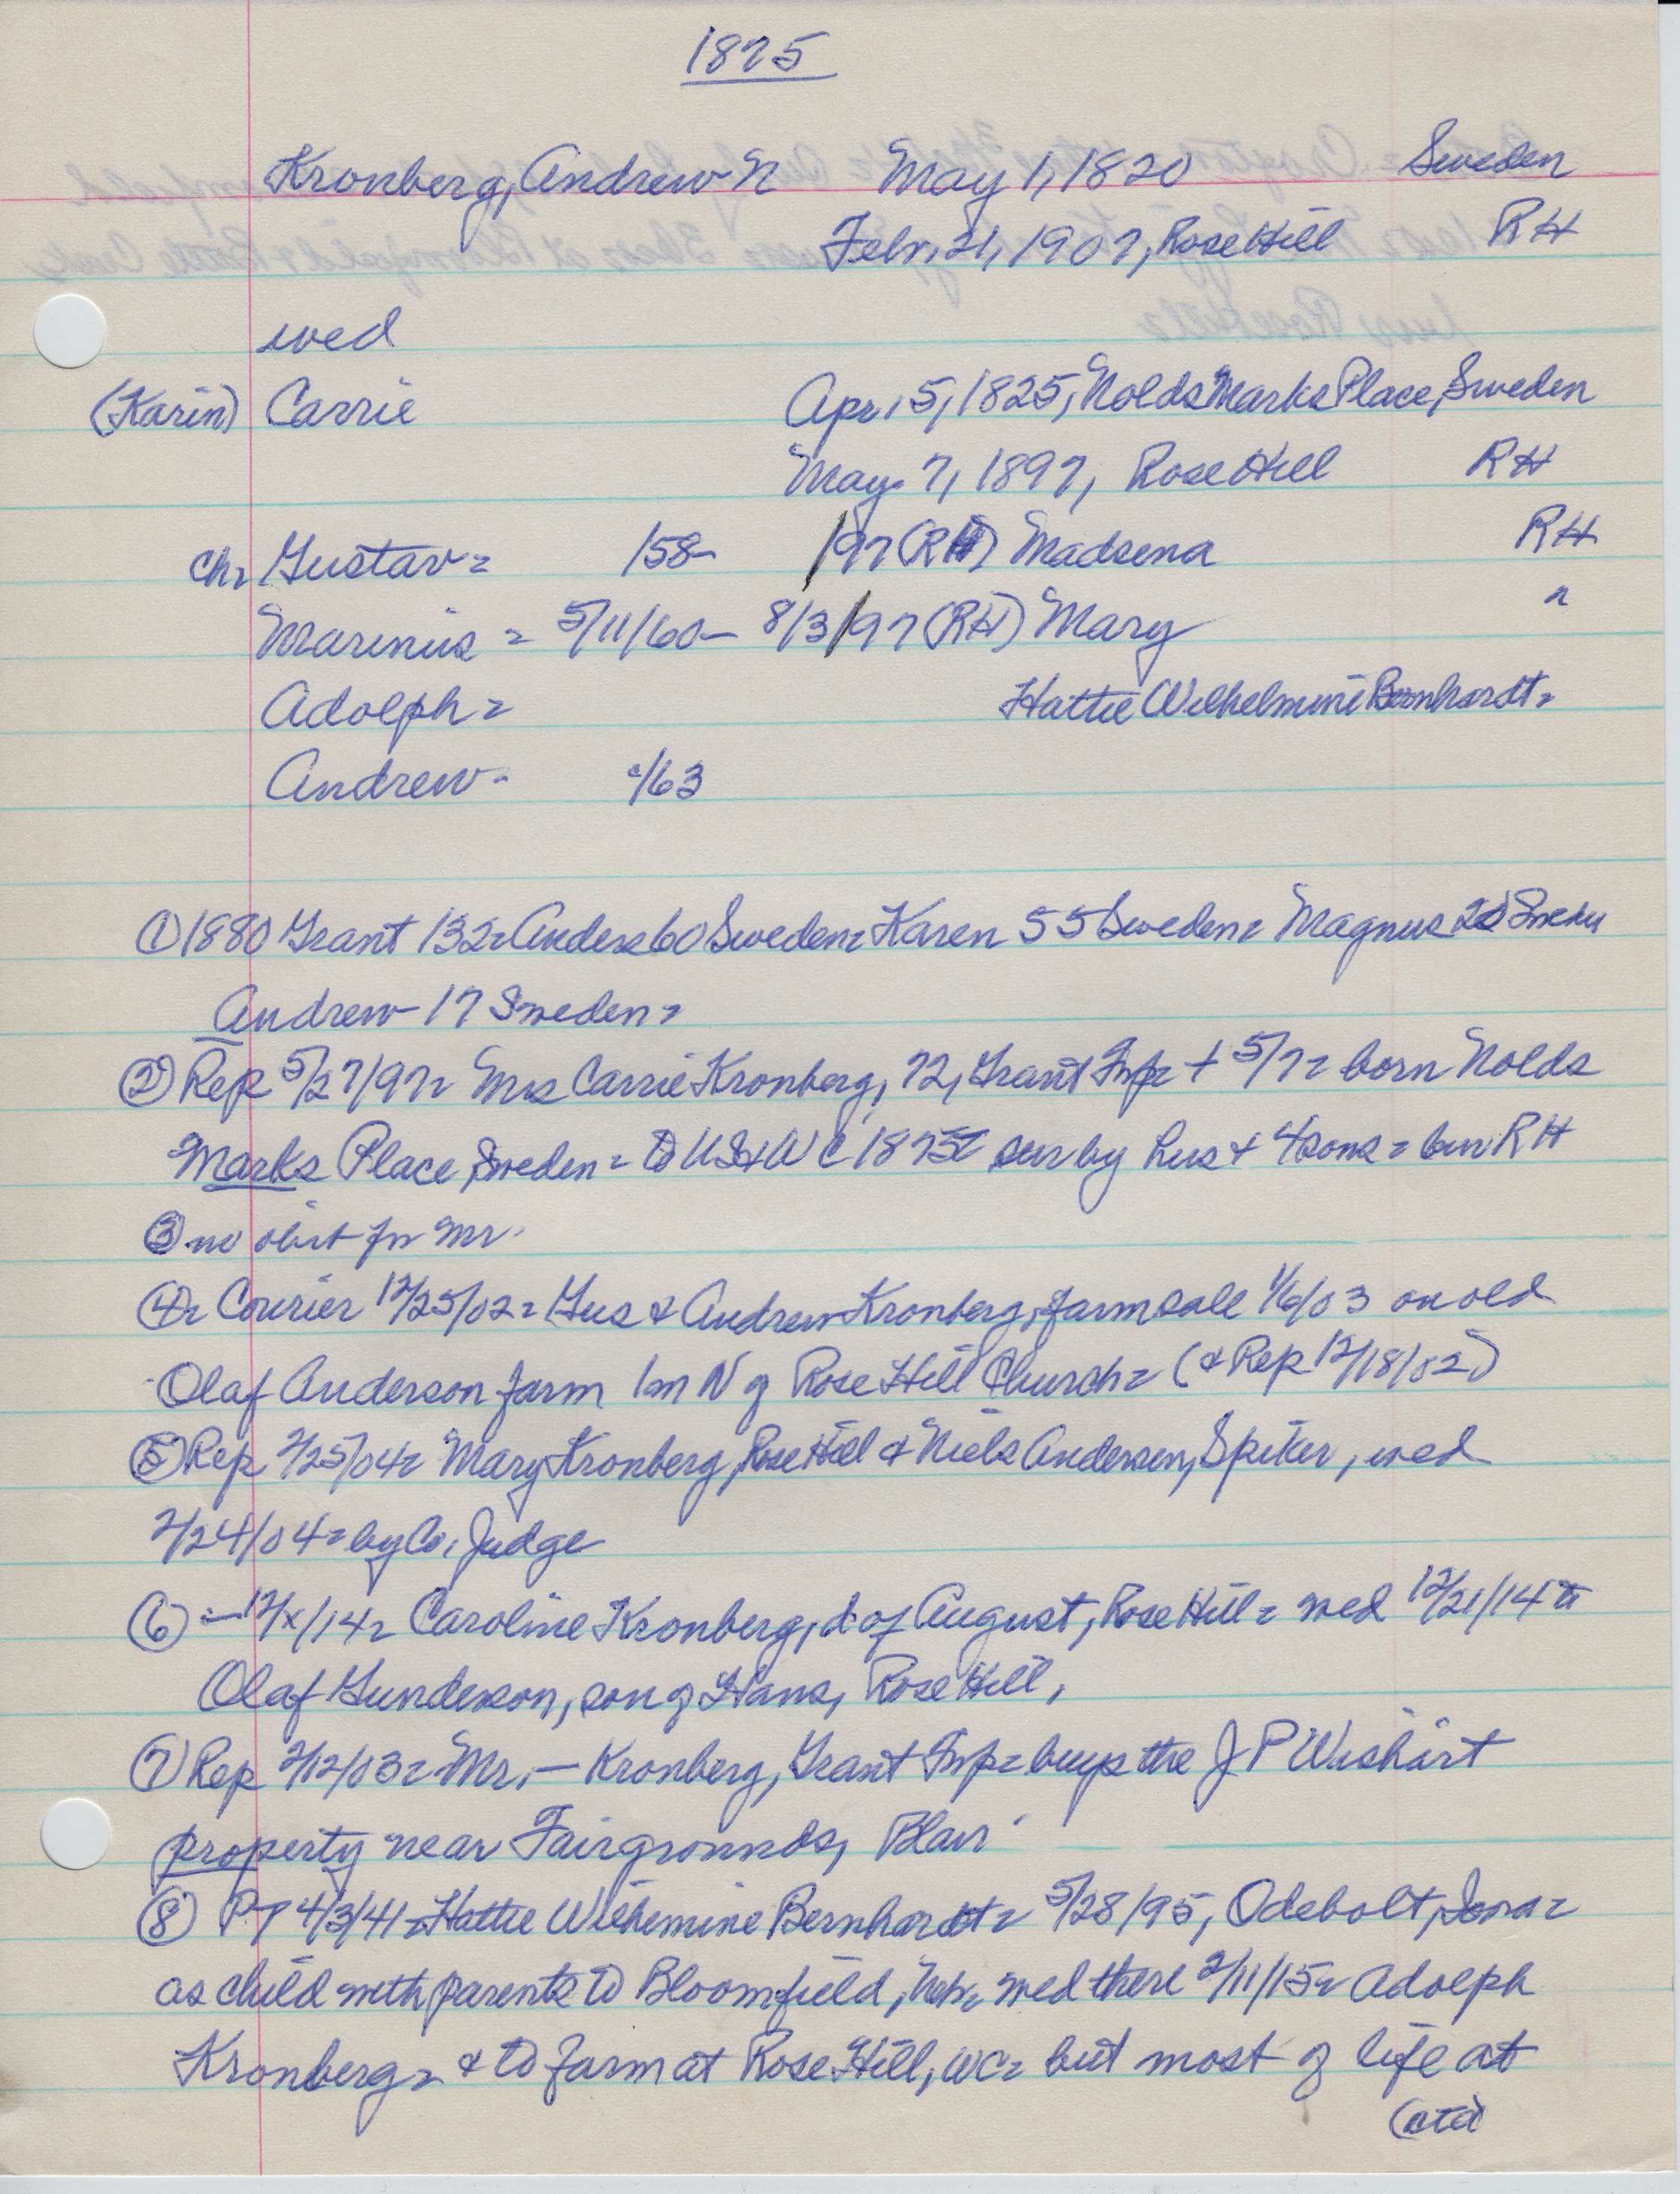 1875
Kronberg, Andrew N May 1, 1820 Sweden
Febr. 21, 1907, Rose Hill RH
wed
(Karin) Carrie Apr. 5, 1825, Nolds Marks Place, Sweden
May. 7, 1897, Rose Hill RH
ch= Gustav= /58- /97 (RH) Madsena RH
Marinus = 5/11/60- 8/3/97 (RH) Mary "
Adolph= Hattie Wilhelmine Bernhardt=
Andrew- c/63
① 1880 Grant 132= Anders 60 Sweden= Karen 55 Sweden= Magnus 20 Sweden
Andrew 17 Sweden=
② Rep 5/27/97= Mrs Carrie Kronberg, 72, Grant Twp= + 5/7= born Nolds
Marks Place, Sweden= to US & WC 1875= sur by hus + 4 sons= bur RH
③ no obit for Mr.
④= Courier 12/25/02= Gus & Andrew Kronberg, farm sale 1/6/03 on old
Olaf Anderson farm 1m N of Rose Hill Church= (& Rep 12/18/02)
⑤ Rep 2/25/04= Mary Kronberg, Rose Hill & Niels Andersen, Spiker, wed
2/24/04= by Co. Judge
⑥ - 12/x/14= Caroline Kronberg, d of August, Rose Hill= wed 12/21/14 to
Olaf Gunderson, son of Hans, Rose Hill,
⑦ Rep 2/12/03= Mr. — Kronberg, Grant Twp= buys the J P Wishart
property near Fairgrounds, Blair
⑧ PT 4/3/41= Hattie Wilhemine Bernhardt= 5/28/95, Odebolt, Iowa=
as child with parents to Bloomfield, Neb= wed there 2/11/15= Adolph
Kronberg= & to farm at Rose Hill, WC= but most of life at
(ctd)